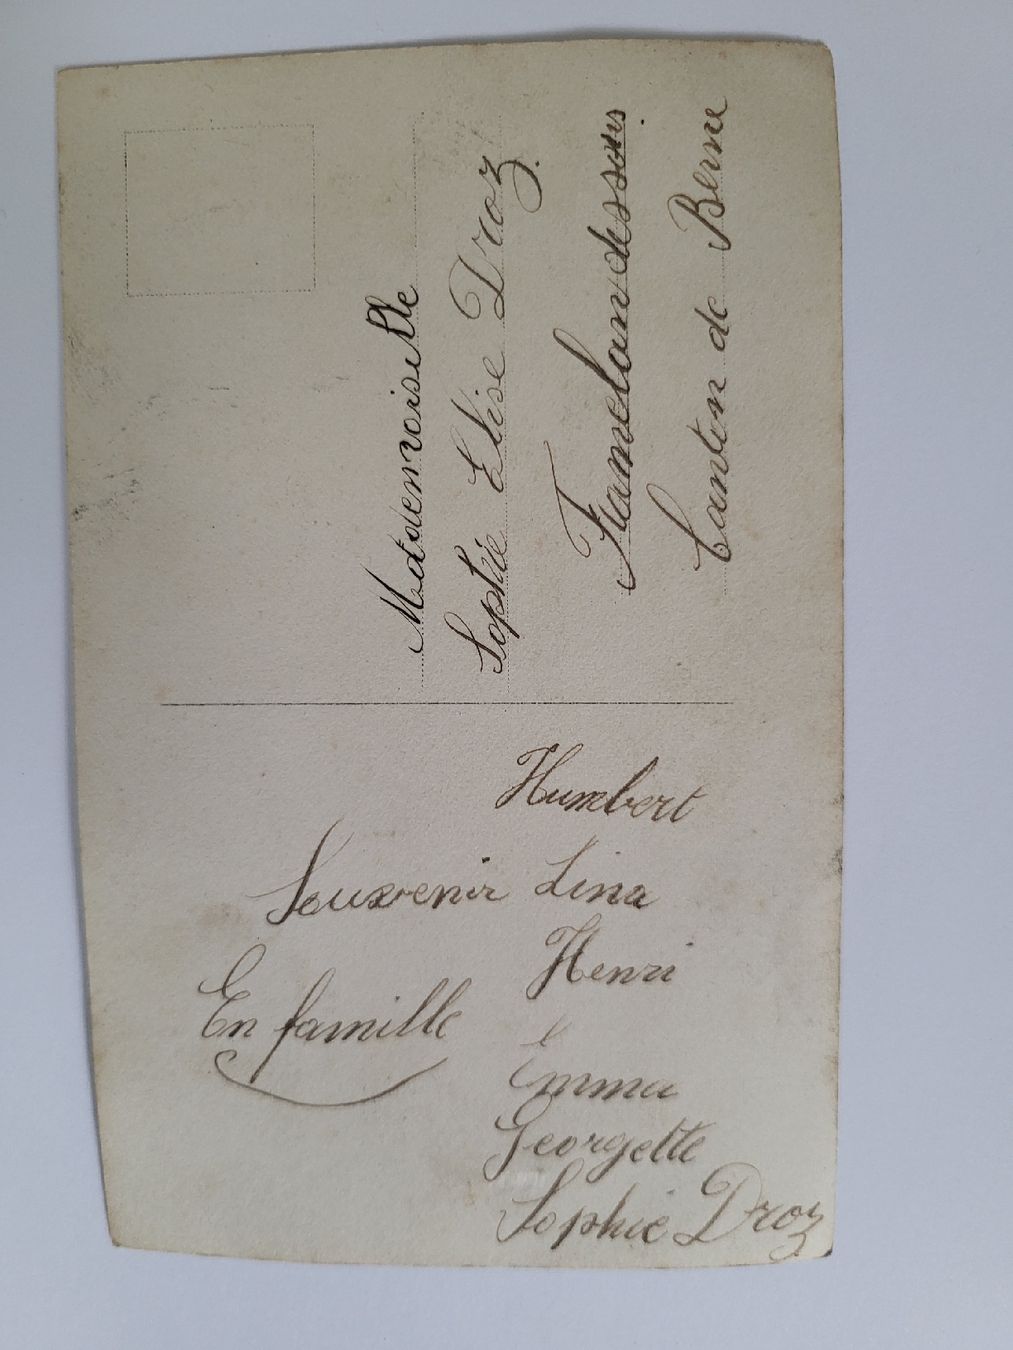 Mademoiselle
Sophie Elise Droz.
Tramelan dessous
Canton de Berne
Humbert
Souvenir Lina
Henri
En famille
Emma
Georgette
Sophie Droz